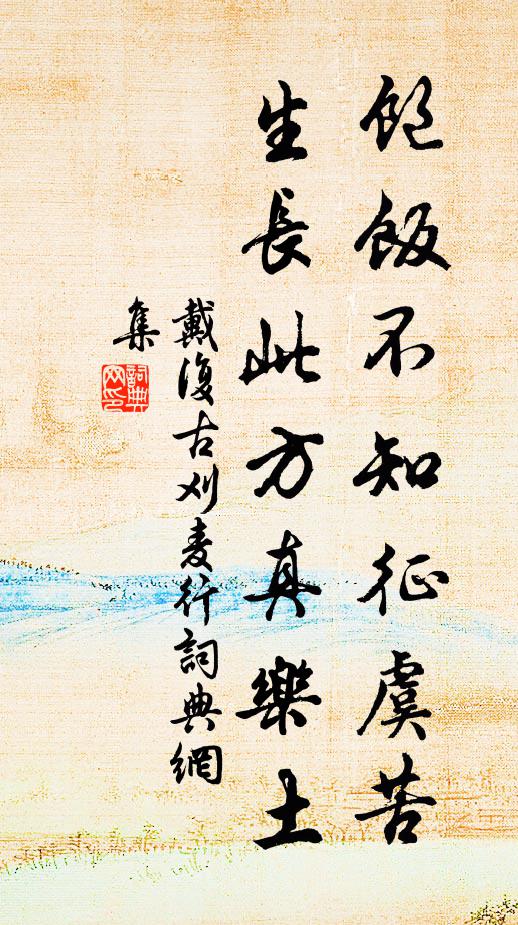 飽飯不知征虞苦
生長此方真樂土
戴復古刈麦行詞典網
集
詞典
网印